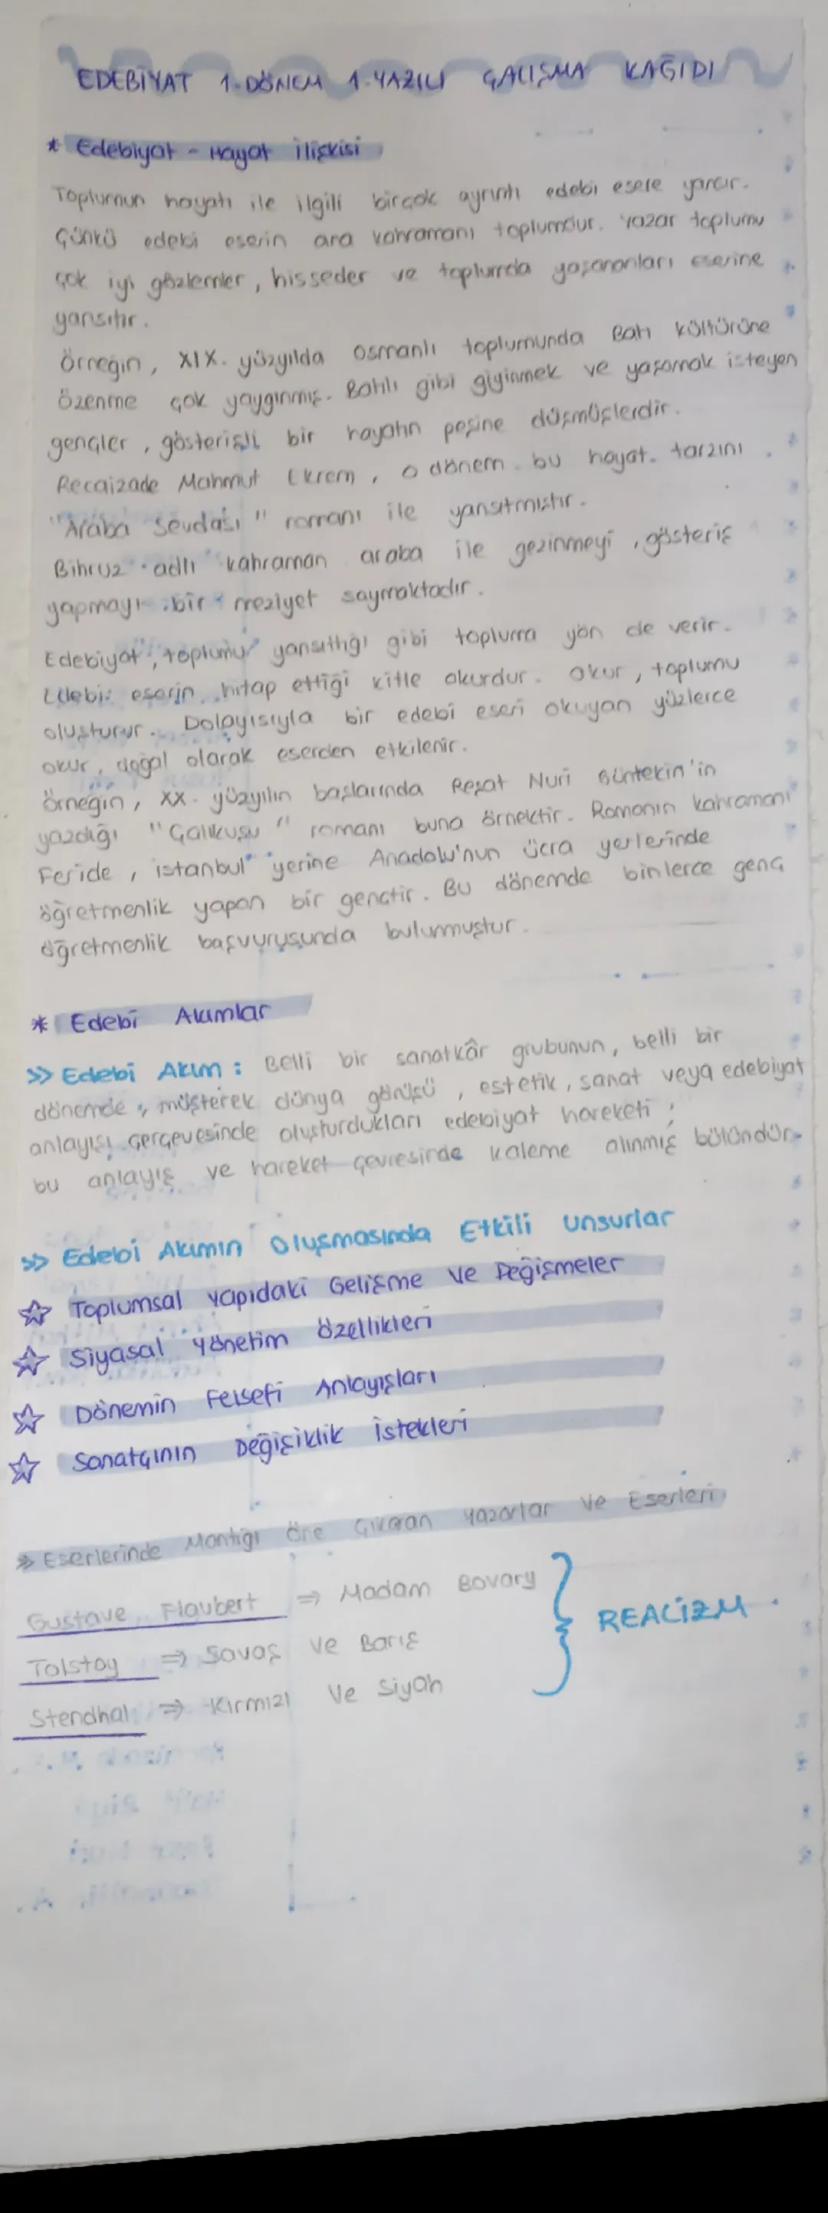 EDEBİYAT 1.DÖNEM 1.YAZILI ÇALIŞMA KAĞIDI
* Edebiyat - Hayat İlişkisi
Toplumun hayatı ile ilgili birçok ayrıntı edebi esere yansır.
Çünkü edebi eserin ana kahramanı toplumdur. Yazar toplumu
çok iyi gözlemler, hisseder ve toplumda yaşananları eserine
yansıtır.
Örneğin, XIX. yüzyılda Osmanlı toplumunda Batı kültürüne
özenme çok yaygınmış. Batılı gibi giyinmek ve yaşamak isteyen
gençler, gösterişli bir hayatın peşine düşmüşlerdir.
Recaizade Mahmut Ekrem, o dönem bu hayat tarzını
"Araba Sevdası" romanı ile yansıtmıştır.
Bihruz adlı kahraman araba ile gezinmeyi, gösteriş
yapmayı bir meziyet saymaktadır.
Edebiyat, toplumu yansıttığı gibi topluma yön de verir.
Edebi eserin hitap ettiği kitle okurdur. Okur, toplumu
oluşturur. Dolayısıyla bir edebi eseri okuyan yüzlerce
okur, doğal olarak eserden etkilenir.
Örneğin, XX. yüzyılın başlarında Reşat Nuri Güntekin'in
yazdığı "Çalıkuşu" romanı buna örnektir. Romanın kahramanı
Feride, İstanbul yerine Anadolu'nun ücra yerlerinde
öğretmenlik yapan bir gençtir. Bu dönemde binlerce genç
öğretmenlik başvurusunda bulunmuştur.
* Edebi Akımlar
>> Edebi Akım: Belli bir sanatkâr grubunun, belli bir
dönemde, müşterek dünya görüşü, estetik, sanat veya edebiyat
anlayışı çerçevesinde oluşturdukları edebiyat hareketi;
bu anlayış ve hareket çevresinde kaleme alınmış bütündür.
>> Edebi Akımın Oluşmasında Etkili Unsurlar
☆ Toplumsal Yapıdaki Gelişme ve Değişmeler
☆ Siyasal Yönetim Özellikleri
☆ Dönemin Felsefi Anlayışları
☆ Sanatçının Değişiklik İstekleri
>> Eserlerinde Mantığı Öne Çıkaran Yazarlar ve Eserleri
Gustave Flaubert ⇒ Madam Bovary
Tolstoy ⇒ Savaş ve Barış
Stendhal ⇒ Kırmızı ve Siyah
REALİZM